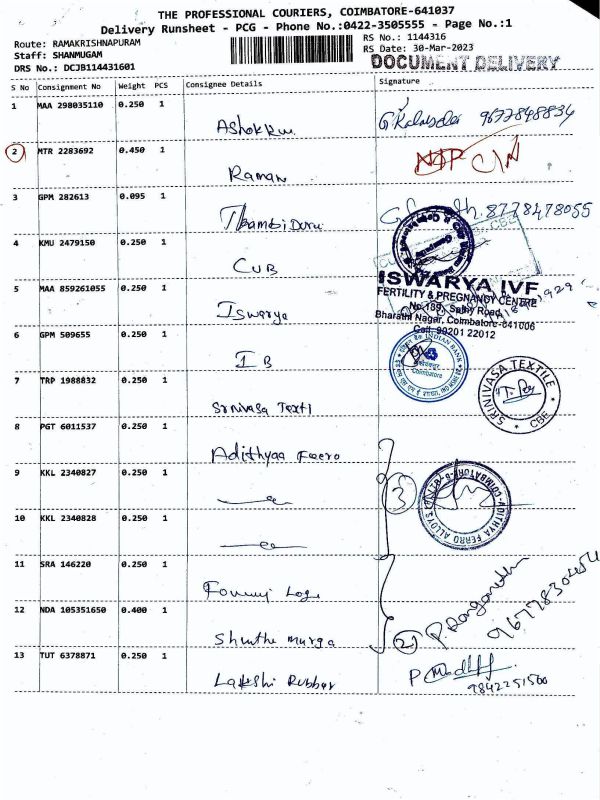 THE PROFESSIONAL COURIERS, COIMBATORE-641037
Delivery Runsheet - PCG - Phone No.:0422-3505555 - Page No.:1
Route: RAMAKRISHNAPURAM
Staff: SHANMUGAM
DRS No.: DCJB114431601
RS No.: 1144316
RS Date: 30-Mar-2023
DOCUMENT DELIVERY
S No Consignment No Weight PCS Consignee Details Signature
1 MAA 298035110 0.250 1
Ashokku 9677848834
2 MTR 2283692 0.450 1
Raman
3 GPM 282613 0.095 1
Thambi Duru 8778478055
4 KMU 2479150 0.250 1
CUB
5 MAA 859261055 0.250 1
Iswarya
ISWARYA IVF
FERTILITY & PREGNANCY CENTRE
No.189, Sathy Road,
Bharathi Nagar, Coimbatore-641006
Cell: 99201 22012
6 GPM 509655 0.250 1
IB
INDIAN BANK
Coimbatore
7 TRP 1988832 0.250 1
Srinivasa Textl
SRINIVASA TEXTILE
* CBE *
8 PGT 6011537 0.250 1
Adithyaa Feero
9 KKL 2340827 0.250 1
3
ADITHYA FERRO ALLOYS
10 KKL 2340828 0.250 1
11 SRA 146220 0.250 1
12 NDA 105351650 0.400 1
Shunthe Murga
2
P. Ranganathan
13 TUT 6378871 0.250 1
Lakshi Rubber
9842251500